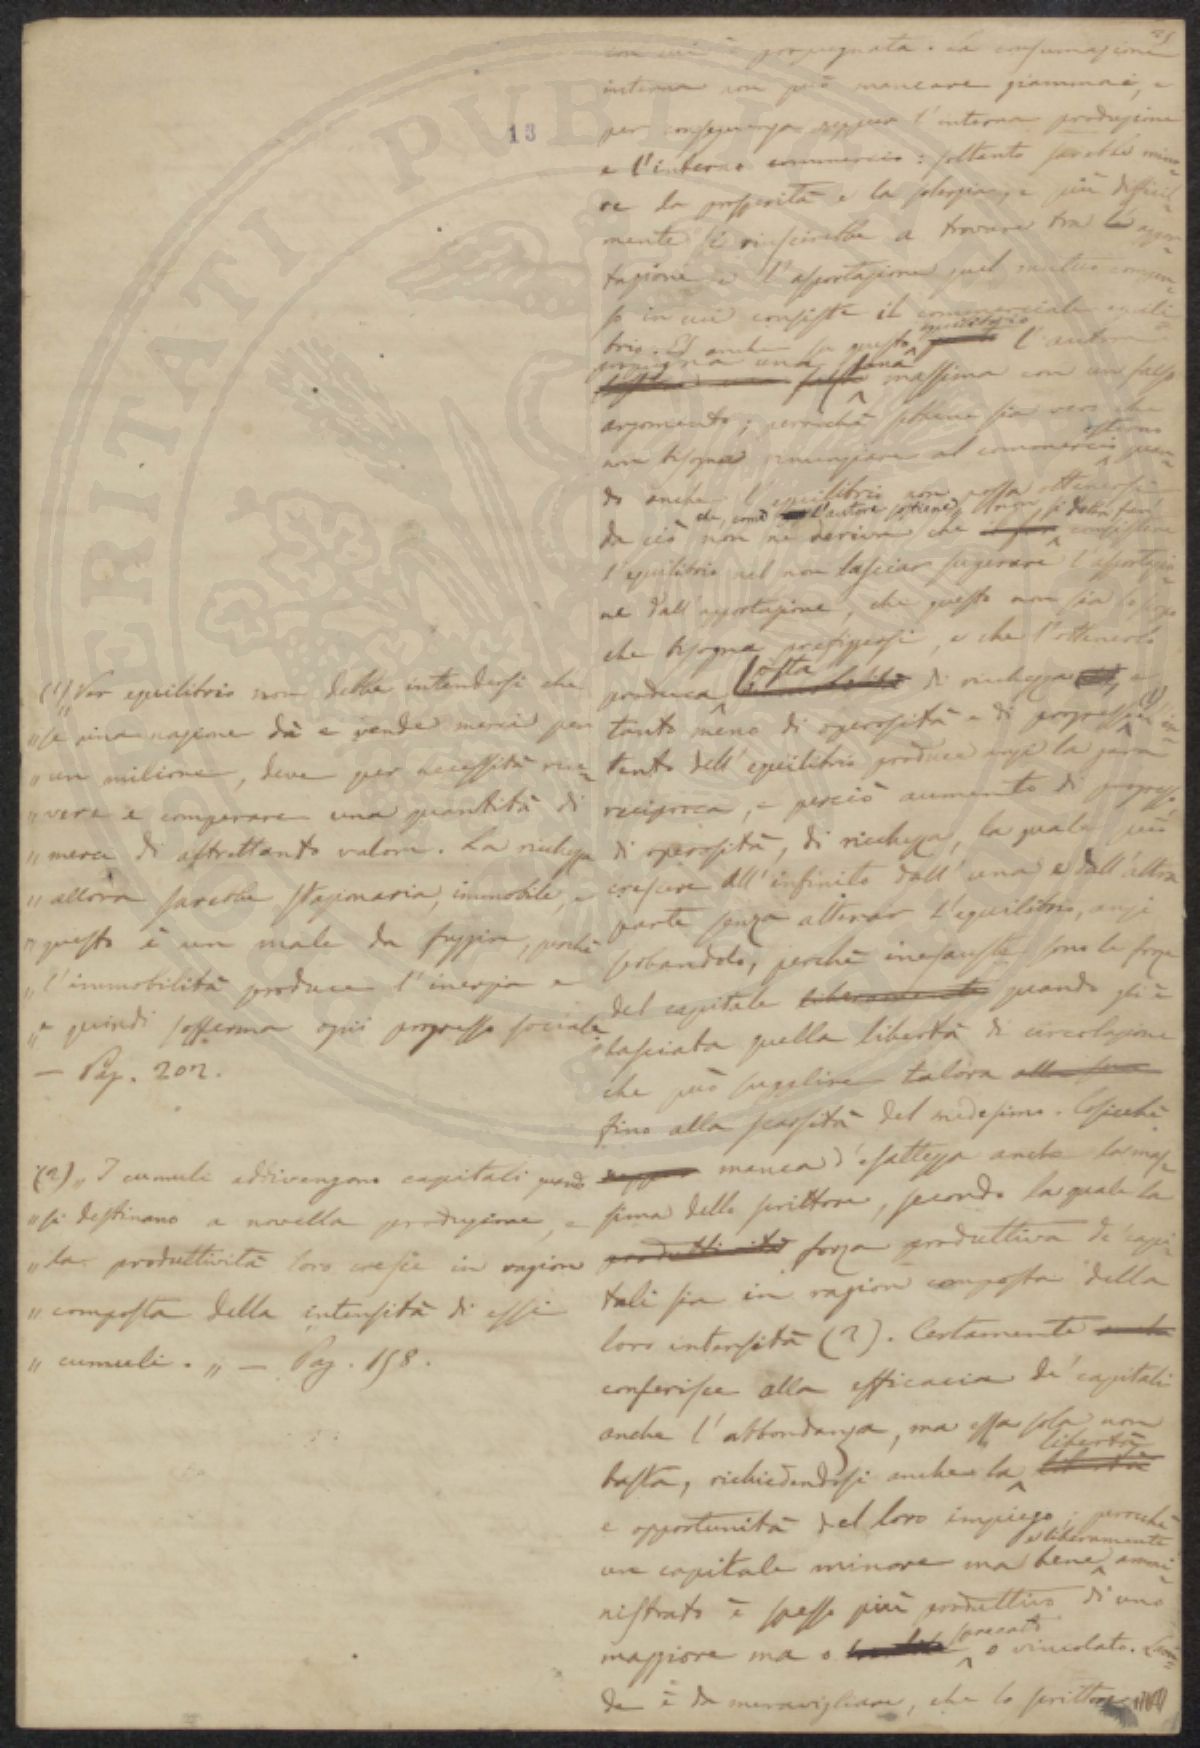 25
con cui è propugnata. La consumazione
interna non può mancare giammai, e
per conseguenza neppur l'interna produzione
e l'interno commercio: soltanto sarebbe mino=
re la prosperità e la solerzia, e più difficil=
mente si riuscirebbe a trovare tra la appor=
tazione e l'asportazione quel mutuo compen=
so in cui consiste il commerciale equili=
brio. Ed anche su questo equilibrio l'autore
propugna una sana massima con un falso
argomento; perocchè sebbene sia vero che
non bisogna rinunziare al commercio esterno quan=
do anche l'equilibrio non possa ottenersi
da ciò non ne deriva che, come l'autore sostiene, non si debba far consistere
l'equilibrio nel non lasciar superare l'asportazio=
ne dall'apportazione, che questo non sia lo scopo
che bisogna prefiggersi, e che l'ottenerlo
produca sosta di ricchezza, e
tanto meno di operosità e di progresso (1). L'in=
tento dell'equilibrio produce anzi la gara
reciproca, e perciò aumento di progresso
di operosità, di ricchezza, la quale può
crescere all'infinito dall'una e dall'altra
parte senza alterar l'equilibrio, anzi
serbandolo, perchè inesauste sono le forze
del capitale liberamente quando gli è
lasciata quella libertà di circolazione
che può supplire talora alla sua
fino alla scarsità del medesimo. Cosicchè
neppur manca d'esattezza anche la mas=
sima dello scrittore, secondo la quale la
produttività forza produttiva de' capi=
tali sia in ragion composta della
loro intensità (2). Certamente
conferisce alla efficacia de' capitali
anche l'abbondanza, ma essa sola non
basta, richiedendosi anche la libertà libertà
e opportunità del loro impiego; perocchè
un capitale minore ma bene e liberamente ammi=
nistrato è spesso più produttivo di uno
maggiore ma o sprecato o vincolato. Laon=
de è da meravigliare, che lo scrittore
13
(1) „ Per equilibrio non debbe intendersi che
„ se una nazione dà e vende merci per
„ un milione, deve per necessità rice=
„ vere e comperare una quantità di
„ merci di altrettanto valore. La ricchezza
„ allora sarebbe stazionaria, immobile, e
„ questo è un male da fuggire, perchè
„ l'immobilità produce l'inerzia e
„ e quindi sofferma ogni progresso sociale „
— Pag. 202.
(2) „ I cumuli addivengono capitali quando
„ si destinano a novella produzione, e
„ la produttività loro cresce in ragion
„ composta della intensità di essi
„ cumuli. „ — Pag. 158.
PERITATI PUBLICAE